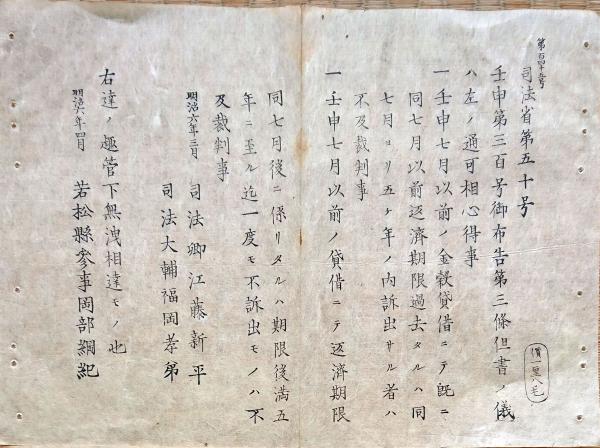 司法省第五十号
壬申第三百号御布告第三條但書ノ儀
ハ左ノ通可相心得事
一壬申七月以前ノ金穀貸借ニテ既ニ
同七月以前返済期限過去タルハ同
七月ヨリ五ヶ年ノ内訴出サル者ハ
不及裁判事
一壬申七月以前ノ貸借ニテ返済期限
同七月後ニ係リタルハ期限後満五
年ニ至ル迄一度モ不訴出モノハ不
及裁判事
明治六年三月 司法卿江藤新平
司法大輔福岡孝弟
右達ノ趣管下無洩相達モノ也
明治六年四月 若松縣参事岡部綱紀
價一里八毛